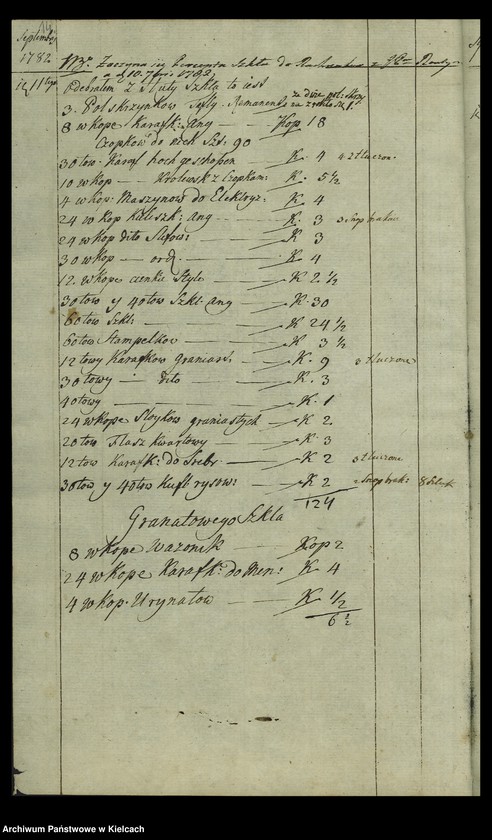 Septembris
1782
NB. Zaczyna się Percepta Szkła do
a d. 10. 7bris 1782
11 Odebrałem z Huty Szkła to iest
3. Pol Skrzynkow Remanentu
8 w Kope Karafk: Ang Kop 18
Czopków do nich Szt. 90
30 tow. Karaf K. 4 4 tłuczon.
10 w Kop — Krolewsk z Czopkam: K. 5½
4 w Kop. Maszynow do Elektryz: K. 4
24 w Kop kielisz: ang K. 3
24 w Kop dito K 3
30 w Kop — ord. K. 4
12. w Kope cienkie Style K 2.½
30 tow y 40 tow Szkl. ang K. 30
60 tow Szkl: K 24½
60 tow. Stampelkow K 3½
12 towy Karafkow graniast. K. 9 tłuczone
30 towy — dito K. 3
40 towy K. 1
24 w Kope Słoykow graniastych K 2.
20 tow Flasz Kwartowy K. 3
12 tow Karafk: do K 2 tłuczone
30 tow y 40 tow Kufl rysow: K 2
124
Granatowego Szkła
8 w Kope Wazonik Kop 2
24 w Kope Karafk: do Men: K 4
4 w Kop. Urynałow K ½
6½
Archiwum Państwowe w Kielcach